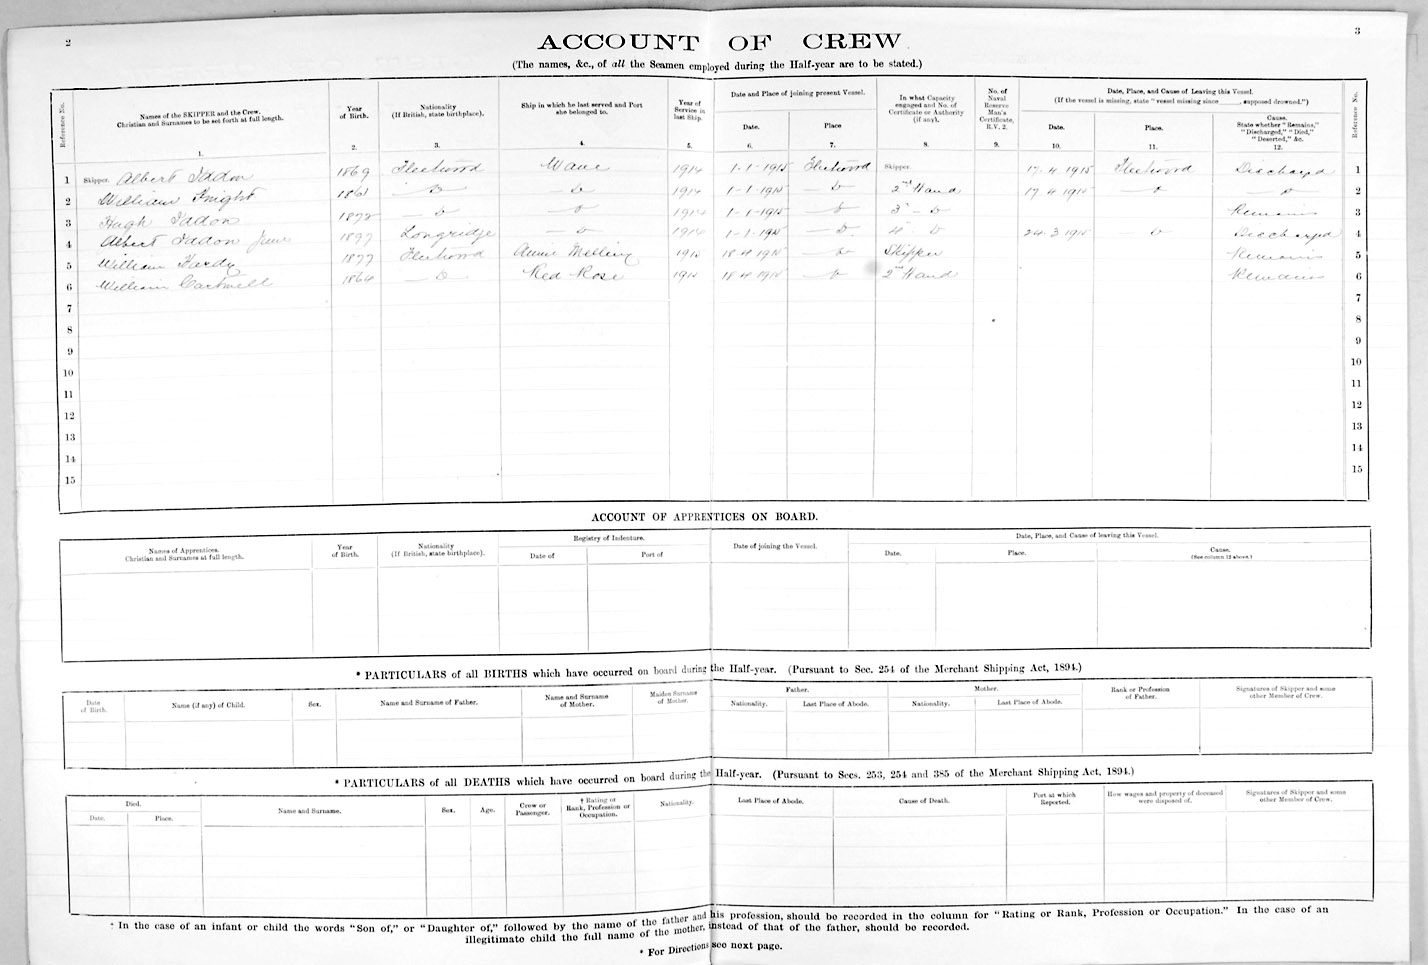 2
3
ACCOUNT OF CREW
(The names, &c., of all the Seamen employed during the Half-year are to be stated.)
Reference No.
Names of the SKIPPER and the Crew.
Christian and Surnames to be set forth at full length.
1.
Year
of Birth.
2.
Nationality
(If British, state birthplace).
3.
Ship in which he last served and Port
she belonged to.
4.
Year of
Service in
last Ship.
5.
Date and Place of joining present Vessel.
Date.
6.
Place
7.
In what Capacity
engaged and No. of
Certificate or Authority
(if any).
8.
No. of
Naval
Reserve
Man's
Certificate,
R.V. 2.
9.
Date, Place, and Cause of Leaving this Vessel.
(If the vessel is missing, state "vessel missing since ____, supposed drowned.")
Date.
10.
Place.
11.
Cause.
State whether "Remains,"
"Discharged," "Died,"
"Deserted," &c.
12.
Reference No.
1 Skipper. Albert Iddon 1869 Fleetwood 1914 1-1-1915 Fleetwood Skipper. 17.4.1915 Fleetwood Discharged 1
2 William Knight 1861 D D 1914 1-1-1915 D 2nd Hand 17.4.1915 D D 2
3 Hugh Iddon D D 1914 1-1-1915 D 3 D Remains 3
4 Albert Iddon Junr 1897 Longridge D 1914 1-1-1915 D 4 D 24.3.1915 D Discharged 4
5 William Hardy 1877 Fleetwood Annie 1915 18.4.1915 D Skipper Remains 5
6 William Cartmell 1864 D Red Rose 1915 18.4.1915 D 2nd Hand Remains 6
7 7
8 8
9 9
10 10
11 11
12 12
13 13
14 14
15 15
ACCOUNT OF APPRENTICES ON BOARD.
Names of Apprentices.
Christian and Surnames at full length.
Year
of Birth.
Nationality
(If British, state birthplace).
Registry of Indenture.
Date of
Port of
Date of joining the Vessel.
Date, Place, and Cause of leaving this Vessel.
Date.
Place.
Cause.
(See column 12 above.)
* PARTICULARS of all BIRTHS which have occurred on board during the Half-year. (Pursuant to Sec. 254 of the Merchant Shipping Act, 1894.)
Date
of Birth.
Name (if any) of Child.
Sex.
Name and Surname of Father.
Name and Surname
of Mother.
Maiden Surname
of Mother.
Father.
Nationality.
Last Place of Abode.
Mother.
Nationality.
Last Place of Abode.
Rank or Profession
of Father.
Signatures of Skipper and some
other Member of Crew.
* PARTICULARS of all DEATHS which have occurred on board during the Half-year. (Pursuant to Secs. 253, 254 and 385 of the Merchant Shipping Act, 1894.)
Died.
Date.
Place.
Name and Surname.
Sex.
Age.
Crew or
Passenger.
† Rating or
Rank, Profession or
Occupation.
Nationality.
Last Place of Abode.
Cause of Death.
Port at which
Reported.
How wages and property of deceased
were disposed of.
Signatures of Skipper and some
other Member of Crew.
† In the case of an infant or child the words "Son of," or "Daughter of," followed by the name of the father and his profession, should be recorded in the column for "Rating or Rank, Profession or Occupation." In the case of an
illegitimate child the full name of the mother, instead of that of the father, should be recorded.
* For Directions see next page.